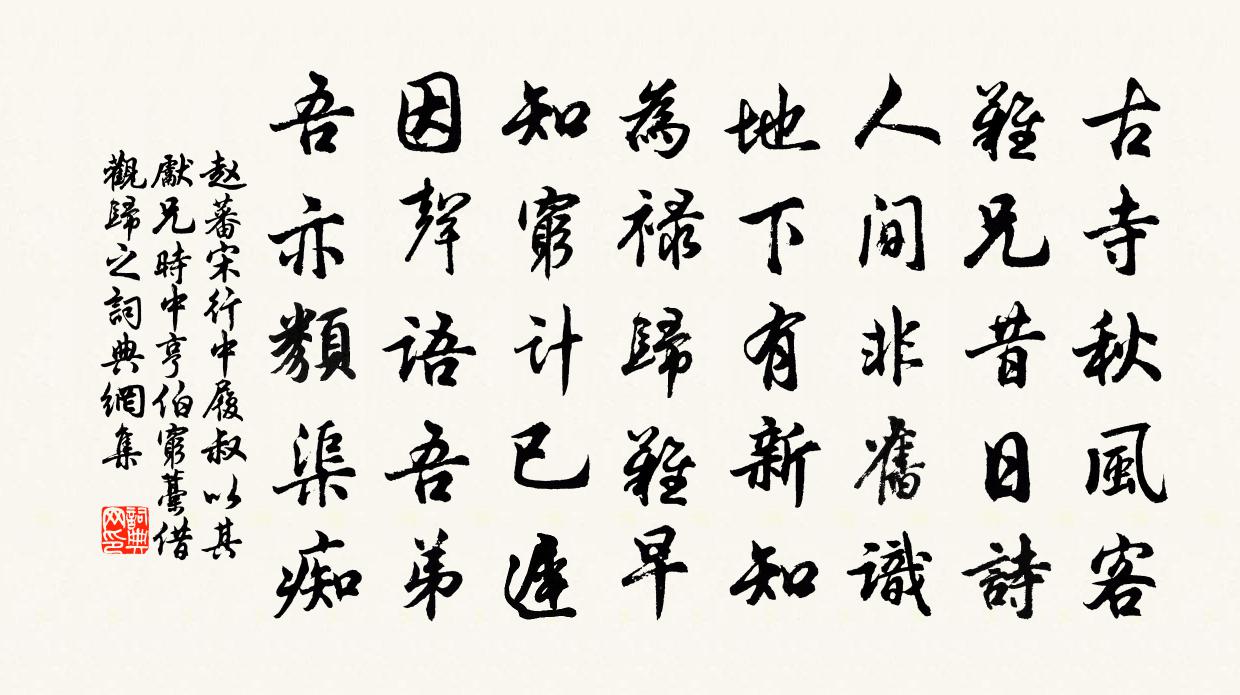 古寺秋風客
難兄昔日詩
人間非舊識
地下有新知
為祿歸難早
知窮計已遲
因聲語吾弟
吾亦類渠痴
赵蕃宋行中履叔以其
獻兄時中亨伯窮藁借
觀歸之詞典網集
詞典
网印